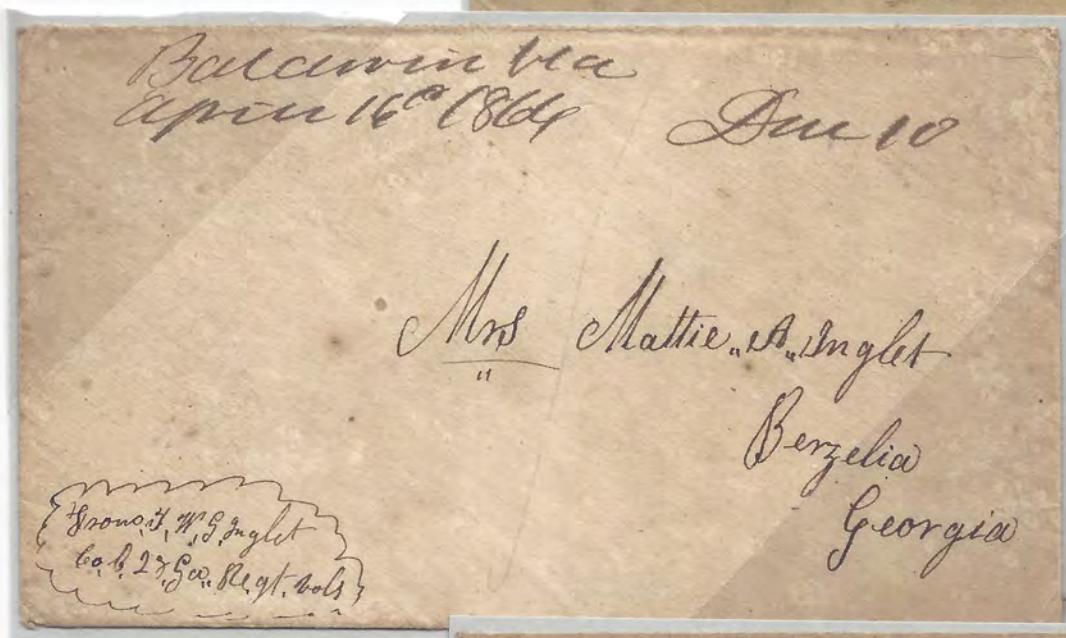 Baldwin Fla
April 16th 1864 Due 10
Mrs Mattie „A„ Inglet
Berzelia
Georgia
From W. G. Inglet
Co. Ga. Regt. Vols